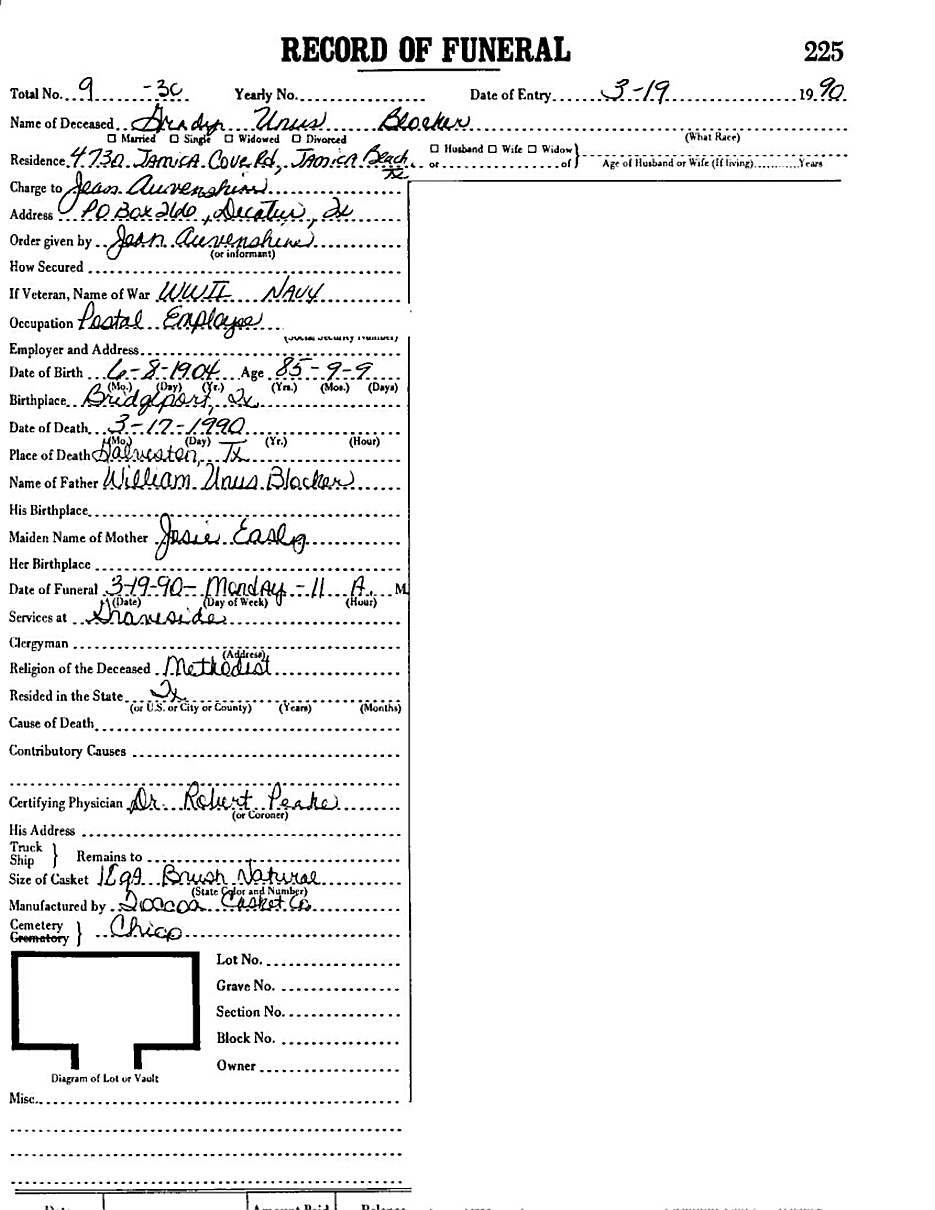 RECORD OF FUNERAL 225
Total No. 9 -30 Yearly No. Date of Entry 3-19 1990
Name of Deceased Gradyn Unus Blocker
□ Married □ Single □ Widowed □ Divorced (What Race)
Residence 4730 Jamica Cove Rd, Jamica Beach, Tx □ Husband □ Wife □ Widow } or of Age of Husband or Wife (If living) Years
Charge to Jean Auvenshine
Address PO Box 266, Decatur, Tx
Order given by Jean Auvenshine
(or informant)
How Secured
If Veteran, Name of War WWII Navy
Occupation Postal Employee
(Social Security Number)
Employer and Address
Date of Birth 6-8-1904 Age 85-9-9
(Mo.) (Day) (Yr.) (Yrs.) (Mos.) (Days)
Birthplace Bridgeport, Tx
Date of Death 3-17-1990
(Mo.) (Day) (Yr.) (Hour)
Place of Death Galveston, Tx
Name of Father William Unus Blocker
His Birthplace
Maiden Name of Mother Josie Easley
Her Birthplace
Date of Funeral 3-19-90- Monday - 11 A. M.
(Date) (Day of Week) (Hour)
Services at Graveside
Clergyman
(Address)
Religion of the Deceased Methodist
Resided in the State Tx
(or U.S. or City or County) (Years) (Months)
Cause of Death
Contributory Causes
Certifying Physician Dr. Robert Peake
(or Coroner)
His Address
Truck Ship } Remains to
Size of Casket 18ga Brush Natural
(State Color and Number)
Manufactured by Toccoa Casket Co
Cemetery Crematory } Chico
Lot No.
Grave No.
Section No.
Block No.
Owner
Diagram of Lot or Vault
Misc.
Date Amount Paid Balance